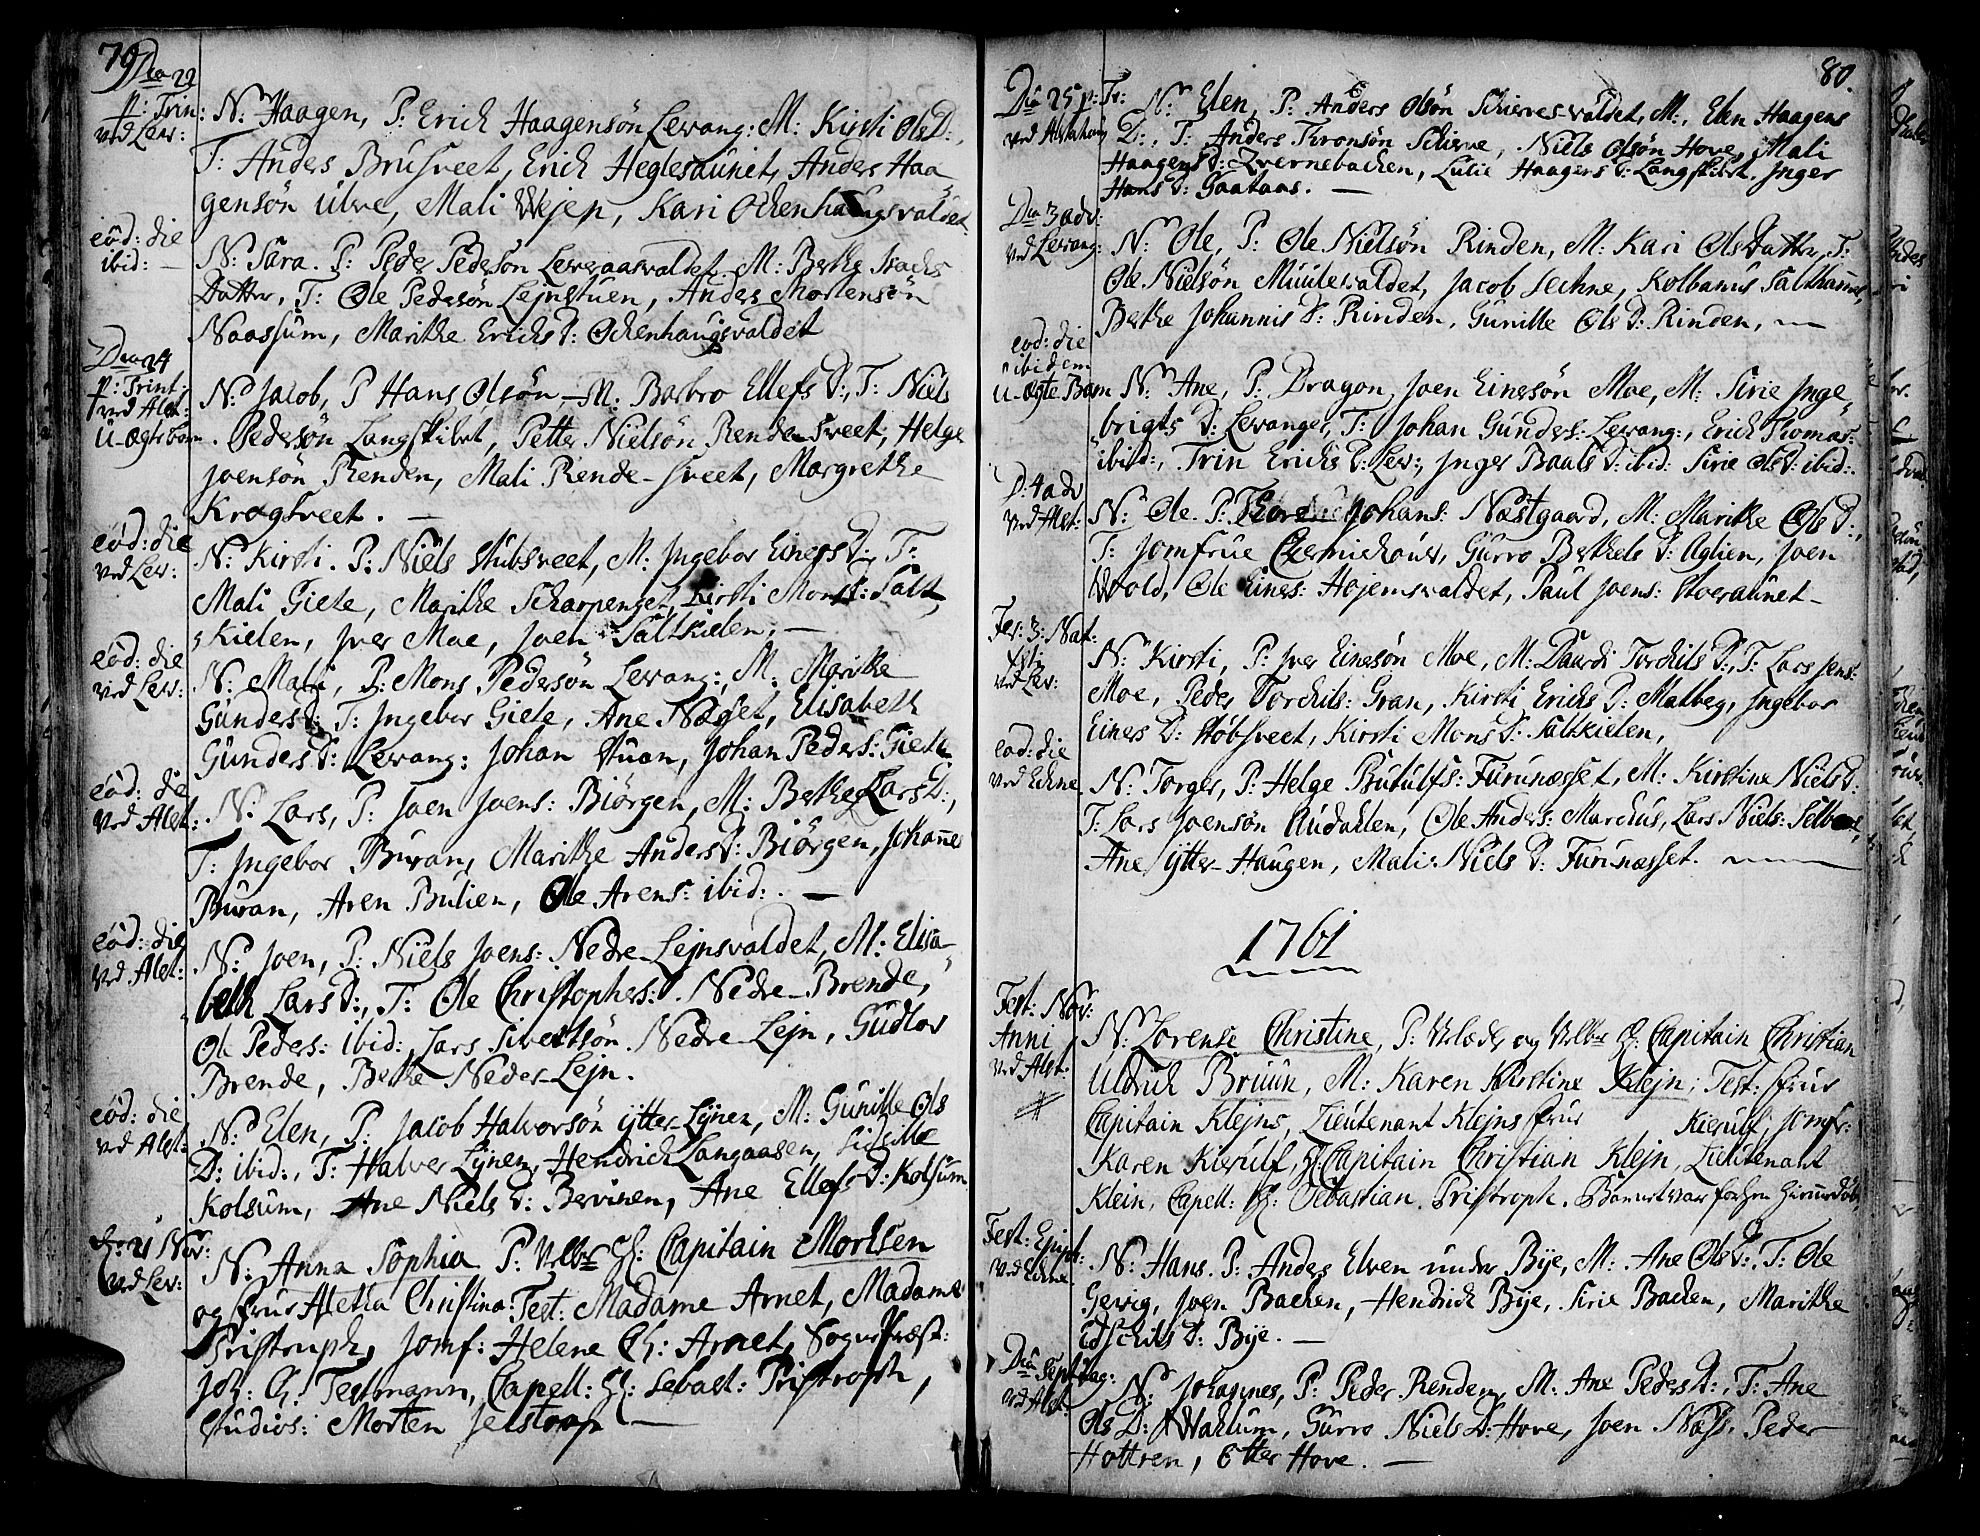 79
Dca 22
p: Trin:
ved Lev:
N: Haagen, P: Erich Haagensön Levang: M: Kirsti Ols D:,
T: Anders Brusveet, Erich Heglesaunet, Anders Haa
gensön Ulve, Mali Wejen, Kari Ockenhaugsvaldet.
eód: die
ibid: —
N: Sara. P: Peder Pedersön Leveraasvaldet. M: Berthe Isachs
Datter, T: Ole Pedersön Lejnstuen, Anders Mortensön
Naassum, Marithe Erichs D: Ockenhaugsvaldet
Dca 24
p: Trint:
ved Alst:
U-ægte barn.
N: Jacob, P Hans Olsön — M: Barbro Ellefs D:, T: Niels
Pedersön Langskibet, Petter Nielsön Rende-sveet, Helge
Joensön Renden, Mali Rende-sveet, Margrethe
Krogsveet. —
eód: die
ved Lev:
N: Kirsti. P: Niels Stubsveet, M: Ingebor Einers D:, T:
Mali Giete, Marithe Scharpenget, Kirsti Mons D: Salt
kielen, Iver Moe, Joen Saltkielen. —
eód: die
ved Lev:
N: Mali, P: Mons Pedersön Levang:, M: Marithe
Gunders D: T: Ingebor Giete, Ane Næsset, Elisabeth
Gunders D: Levang: Johan Stuan, Johan Peders: Giete
eód: die
ved Alst:
N: Lars, P: Joen Joens: Biörgen, M: Berthe Lars D:,
T: Ingebor Buran, Marithe Anders D: Biörgen, Johanne
Buran, Aren Bulien, Ole Arens: ibid: . —
eód: die
ved Alst:
N: Joen, P: Niels Joens: Nedre-Lejnsvaldet, M: Elisa-
beth Lars D:, T: Ole Christophers: Nedre-Brende,
Ole Peders: ibid: Lars Sivertsön Nedre Lejn, Gudlov
Brende, Berthe Neder-Lejn.
eód: die
ved Alst:
N: Elen, P: Jacob Halvorsön ytter-Lynen, M: Gunille Ols
D: ibid:, T: Halver Lynen, Hendrich Langaasen, Sidsille
Kolsum, Ane Niels D: Bervinen, Ane Ellefs D: Kolsum
21 Nov:
ved Lev:
N: Anna Sophia P: Velbr H: Capitain Mortsen
og frue Aletta Christina: Test: Madame Arnet, Madame
Pristruph, Jomf: Helene Ch: Arnet, Sognepræst:
Joh: Ch: Testmann, Capell: H: Sebast: Pristroph,
Studios: Morten Jelstrop —
80.
Dca 25 p: Tr:
ved Alstahoug
N: Elen, P: Anders Olsön Schierves-valdet, M:, Elen Haagens
D:, T: Anders Thronsön Schierve, Niels Olsön Hove, Mali
Haagens D: Qvernebachen, Lulie Haagens D: Langskibet, Inger
Hans D: Gaataas. —
Dca 3 adv:
ved Levang:
N: Ole, P: Ole Nielsön Rinden, M: Kari Ols Datter, T:
Ole Nielsön Muulevaldet, Jacob Sechne, Kolbanus Salthammer,
Berthe Johannis D: Rinden, Gunille Ols D: Rinden, —
eod: die
ibidem
U-ægte Barn
N: Ane, P: Dragon Joen Einersön Moe, M: Sirie Inge
brigts D: Levanger, T: Johan Gunders: Levang:, Erich Thomas:
ibid:, Trin Erichs D: Lev:, Inger Baals D: ibid: Sirie Ols D: ibid:
D: 4 adv
ved Alst:
N: Ole. P: Thore Johans: Næstgaard, M: Marithe Ols D:,
T: Jomfrue Czernichous, Gurro Berthels D: Aglien, Joen
Wold, Ole Eines: Hojemsvaldet, Paul Joens: Stoeraunet —
Fer: 3: Nat:
Xsti
ved Lev:
N: Kirsti, P: Iver Einersön Moe, M: Daardi Torchils D:, T: Lars Jens:
Moe, Peder Torchils: Gran, Kirsti Erichs D: Malbeg, Ingebor
Einers D: Stobsveet, Kirsti Mons D: Saltkielen,
eod: die
ved Echne
N: Torger, P: Helge Rutulfs: Furunæsset, M: Kirstine Niels D:
T: Lars Joensön Audahlen, Ole Anders: Marchus, Lars Niels: Selboe,
Ane ytter-Haugen, Mali Niels D: Furunæsset.
1761
Fest: Nov:
Anni
ved Alst:
N: Lorense Christine, P: Velædle og Velbr H: Capitain Christian
Uldrich Bruun, M: Karen Kirstine Klejn: Test: frue
Capitain Klejns, Lieutenant Klejns frue Kierulf, Jomfr:
Karen Kierulf, H: Capitain Christian Klejn, Lieutenant
Klein, Capell: H: Sebastian Pristroph.
Fest: Epiph:
ved Echne
N: Hans. P: Anders Elven under Bye, M: Ane Ols D:. T: Ole
Gevig, Joen Bachen, Hendrich Bye, Sirie Bachen, Marithe
Edschils D: Bye. —
Dca Septuag:
ved Alst:
N: Johannes, P: Peder Renden, M. Ane Peders D:, T: Ane
Ols D: Wahlum, Gurro Niels D: Hove, Joen Næss. Peder
Hottren, Etter Hove. —